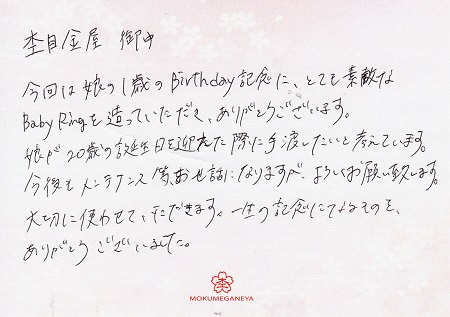 杢目金屋 御中
今回は娘の1歳のBirthday記念に、とても素敵な
Baby Ringを造っていただき、ありがとうございます。
娘が20歳の誕生日を迎えた際に手渡したいと考えています。
今後もメンテナンス等、お世話になりますが、よろしくお願い致します。
大切に使わせていただきます。一生の記念にてなるものを、
ありがとうございました。
MOKUMEGANEYA